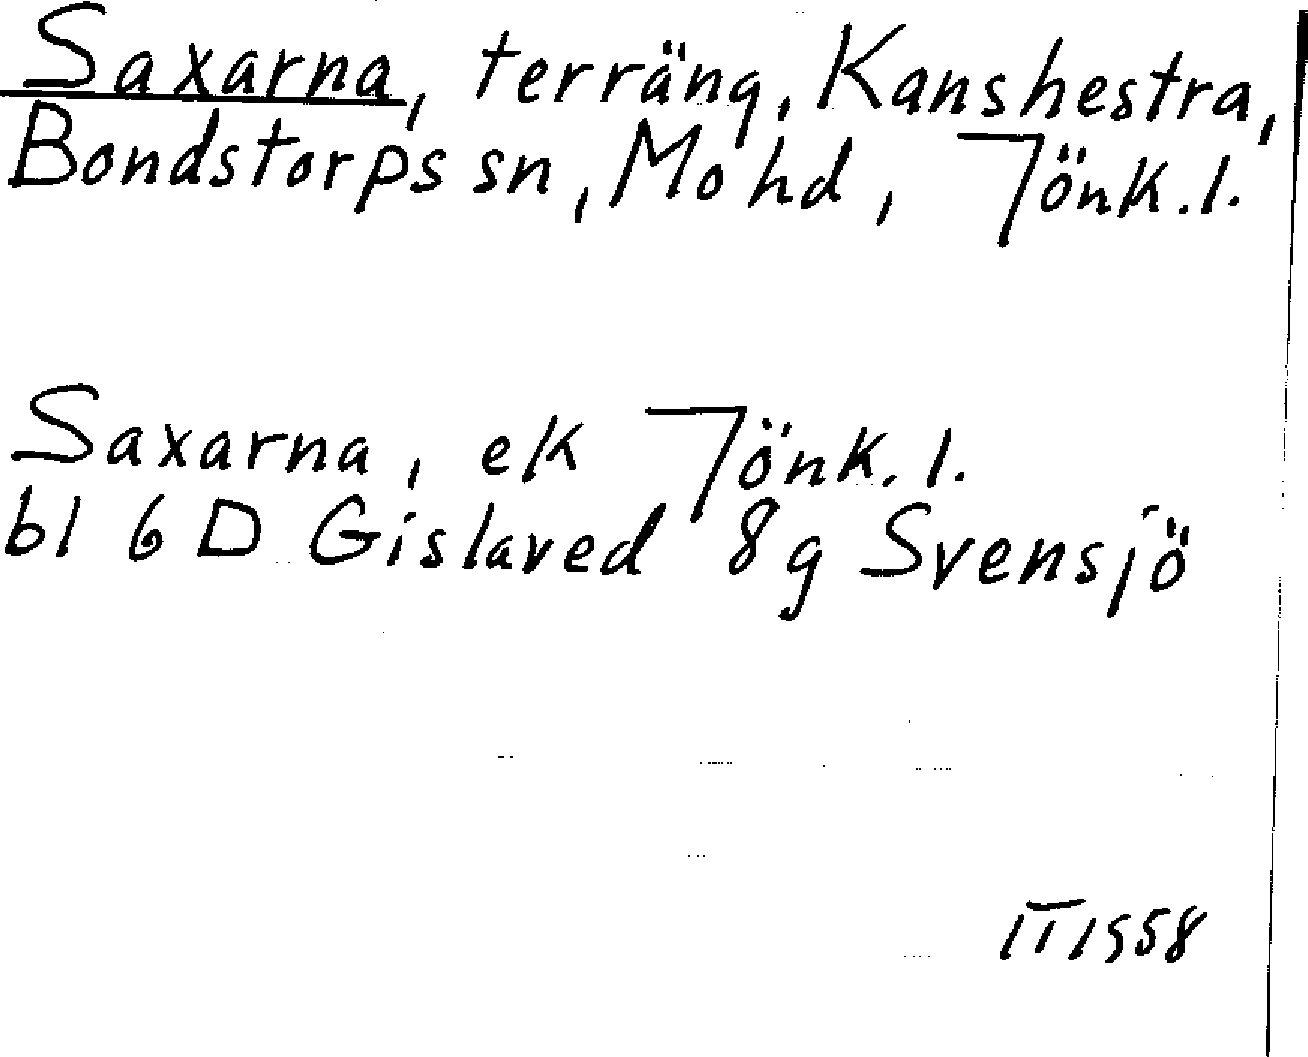 Saxarna, terräng, Kanshestra,
Bondstorps sn, Mo hd, Jönk.l.
Saxarna, ek Jönk.l.
bl 6 D Gislaved 8g Svensjö
IT 1958